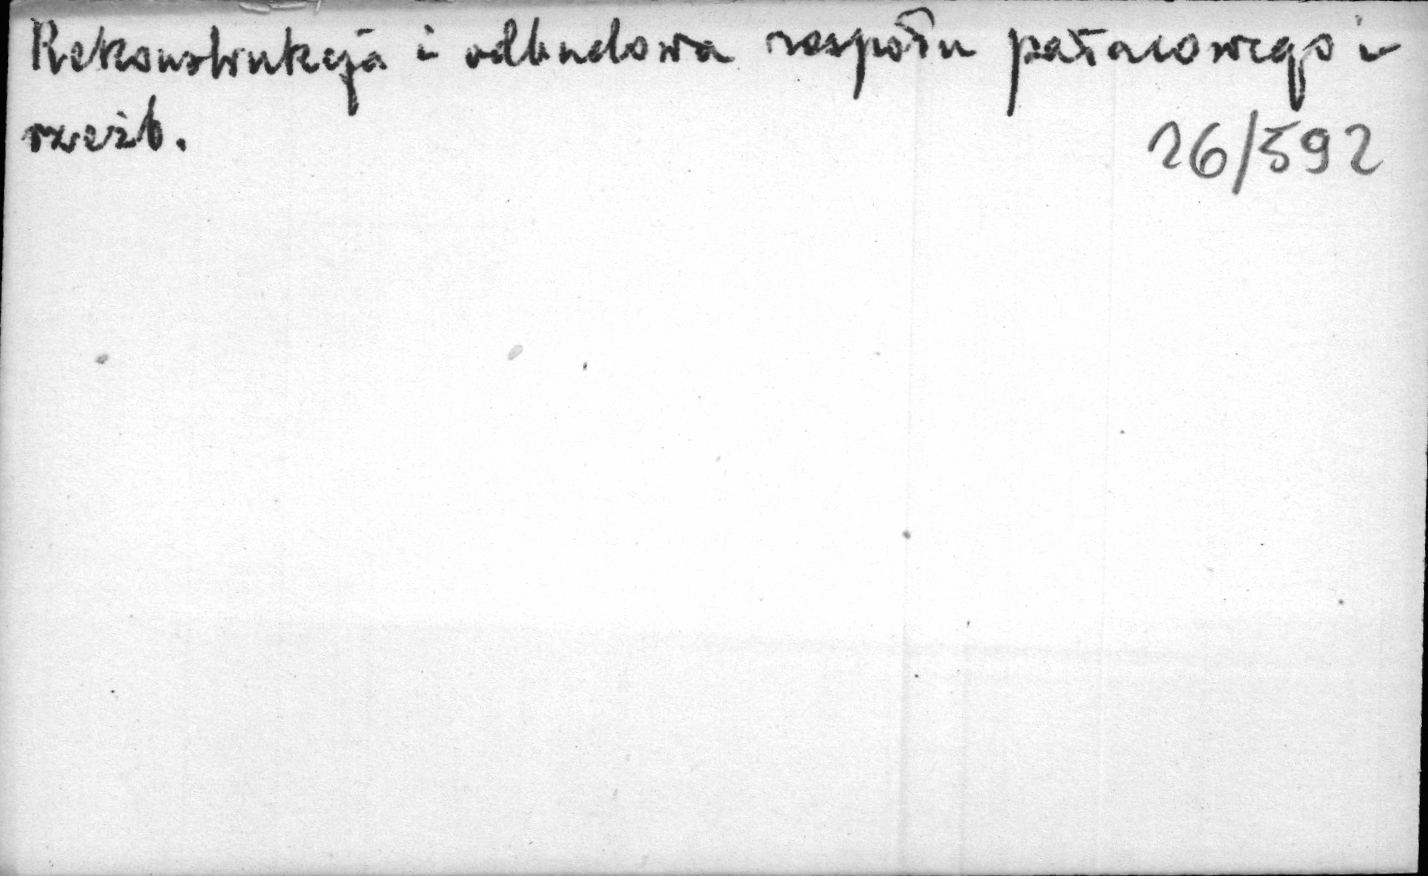 Rekonstrukcja i odbudowa zespołu pałacowego i
rzeźb.
26/592